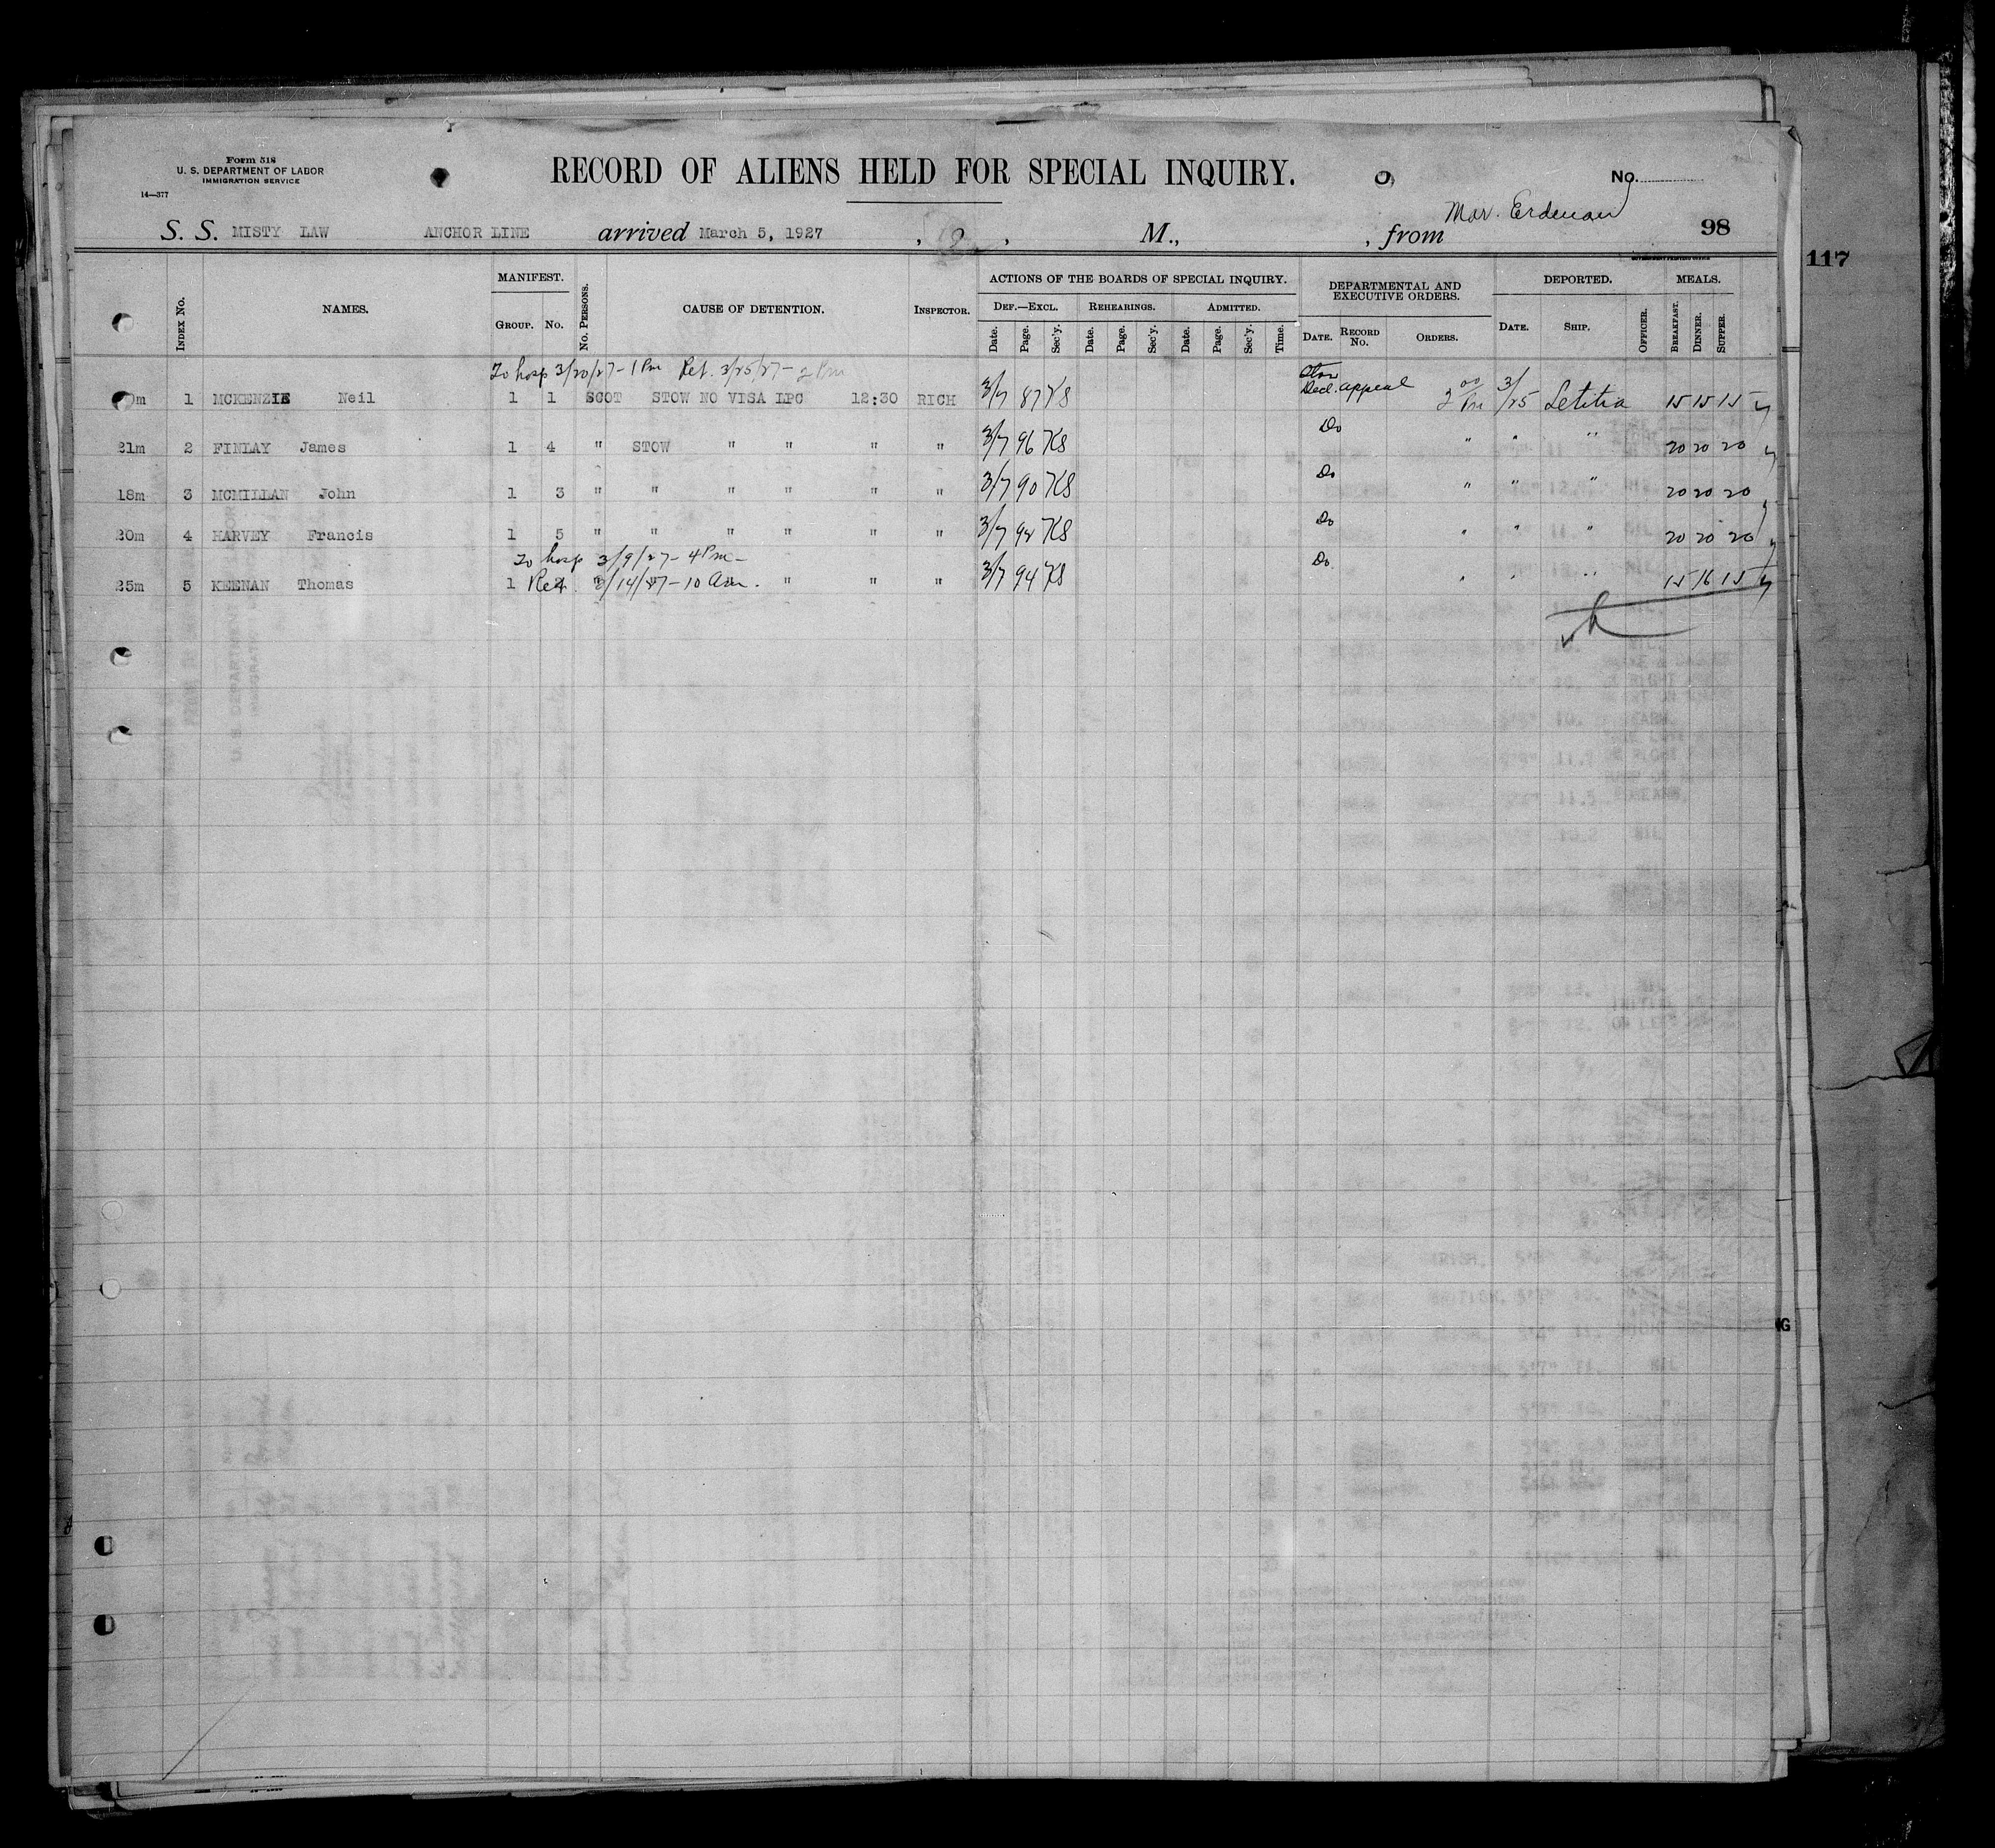 Form 518
U. S. DEPARTMENT OF LABOR
IMMIGRATION SERVICE
14—377
RECORD OF ALIENS HELD FOR SPECIAL INQUIRY.
No.
S. S. MISTY LAW ANCHOR LINE arrived March 5, 1927, M., , from
98
117
INDEX No. NAMES. MANIFEST. GROUP. No. No. PERSONS. CAUSE OF DETENTION. INSPECTOR. ACTIONS OF THE BOARDS OF SPECIAL INQUIRY. DEF.—EXCL. Date. Page. Sec'y. REHEARINGS. Date. Page. Sec'y. ADMITTED. Date. Page. Sec'y. Time. DEPARTMENTAL AND EXECUTIVE ORDERS. DATE. RECORD No. ORDERS. DEPORTED. DATE. SHIP. OFFICER. MEALS. BREAKFAST. DINNER. SUPPER.
To hosp 3/20/27 - 1 Pm Ret. 3/25/27 - 2 Pm
1 MCKENZIE Neil 1 1 SCOT STOW NO VISA LPC 12:30 RICH 3/7 87 KS Decl. appeal 2 00 Pm 3/25 Letitia 15 15 15
21m 2 FINLAY James 1 4 " STOW " " " " 3/7 96 KS Do " " " 20 20 20
18m 3 MCMILLAN John 1 3 " " " " " " 3/7 90 KS Do " " " 20 20 20
20m 4 HARVEY Francis 1 5 " " " " " " 3/7 98 KS Do " " " 20 20 20
To hosp 3/9/27 - 4 Pm -
25m 5 KEENAN Thomas 1 Ret. 3/14/27 - 10 am. " " " 3/7 94 KS Do " " " 15 16 15